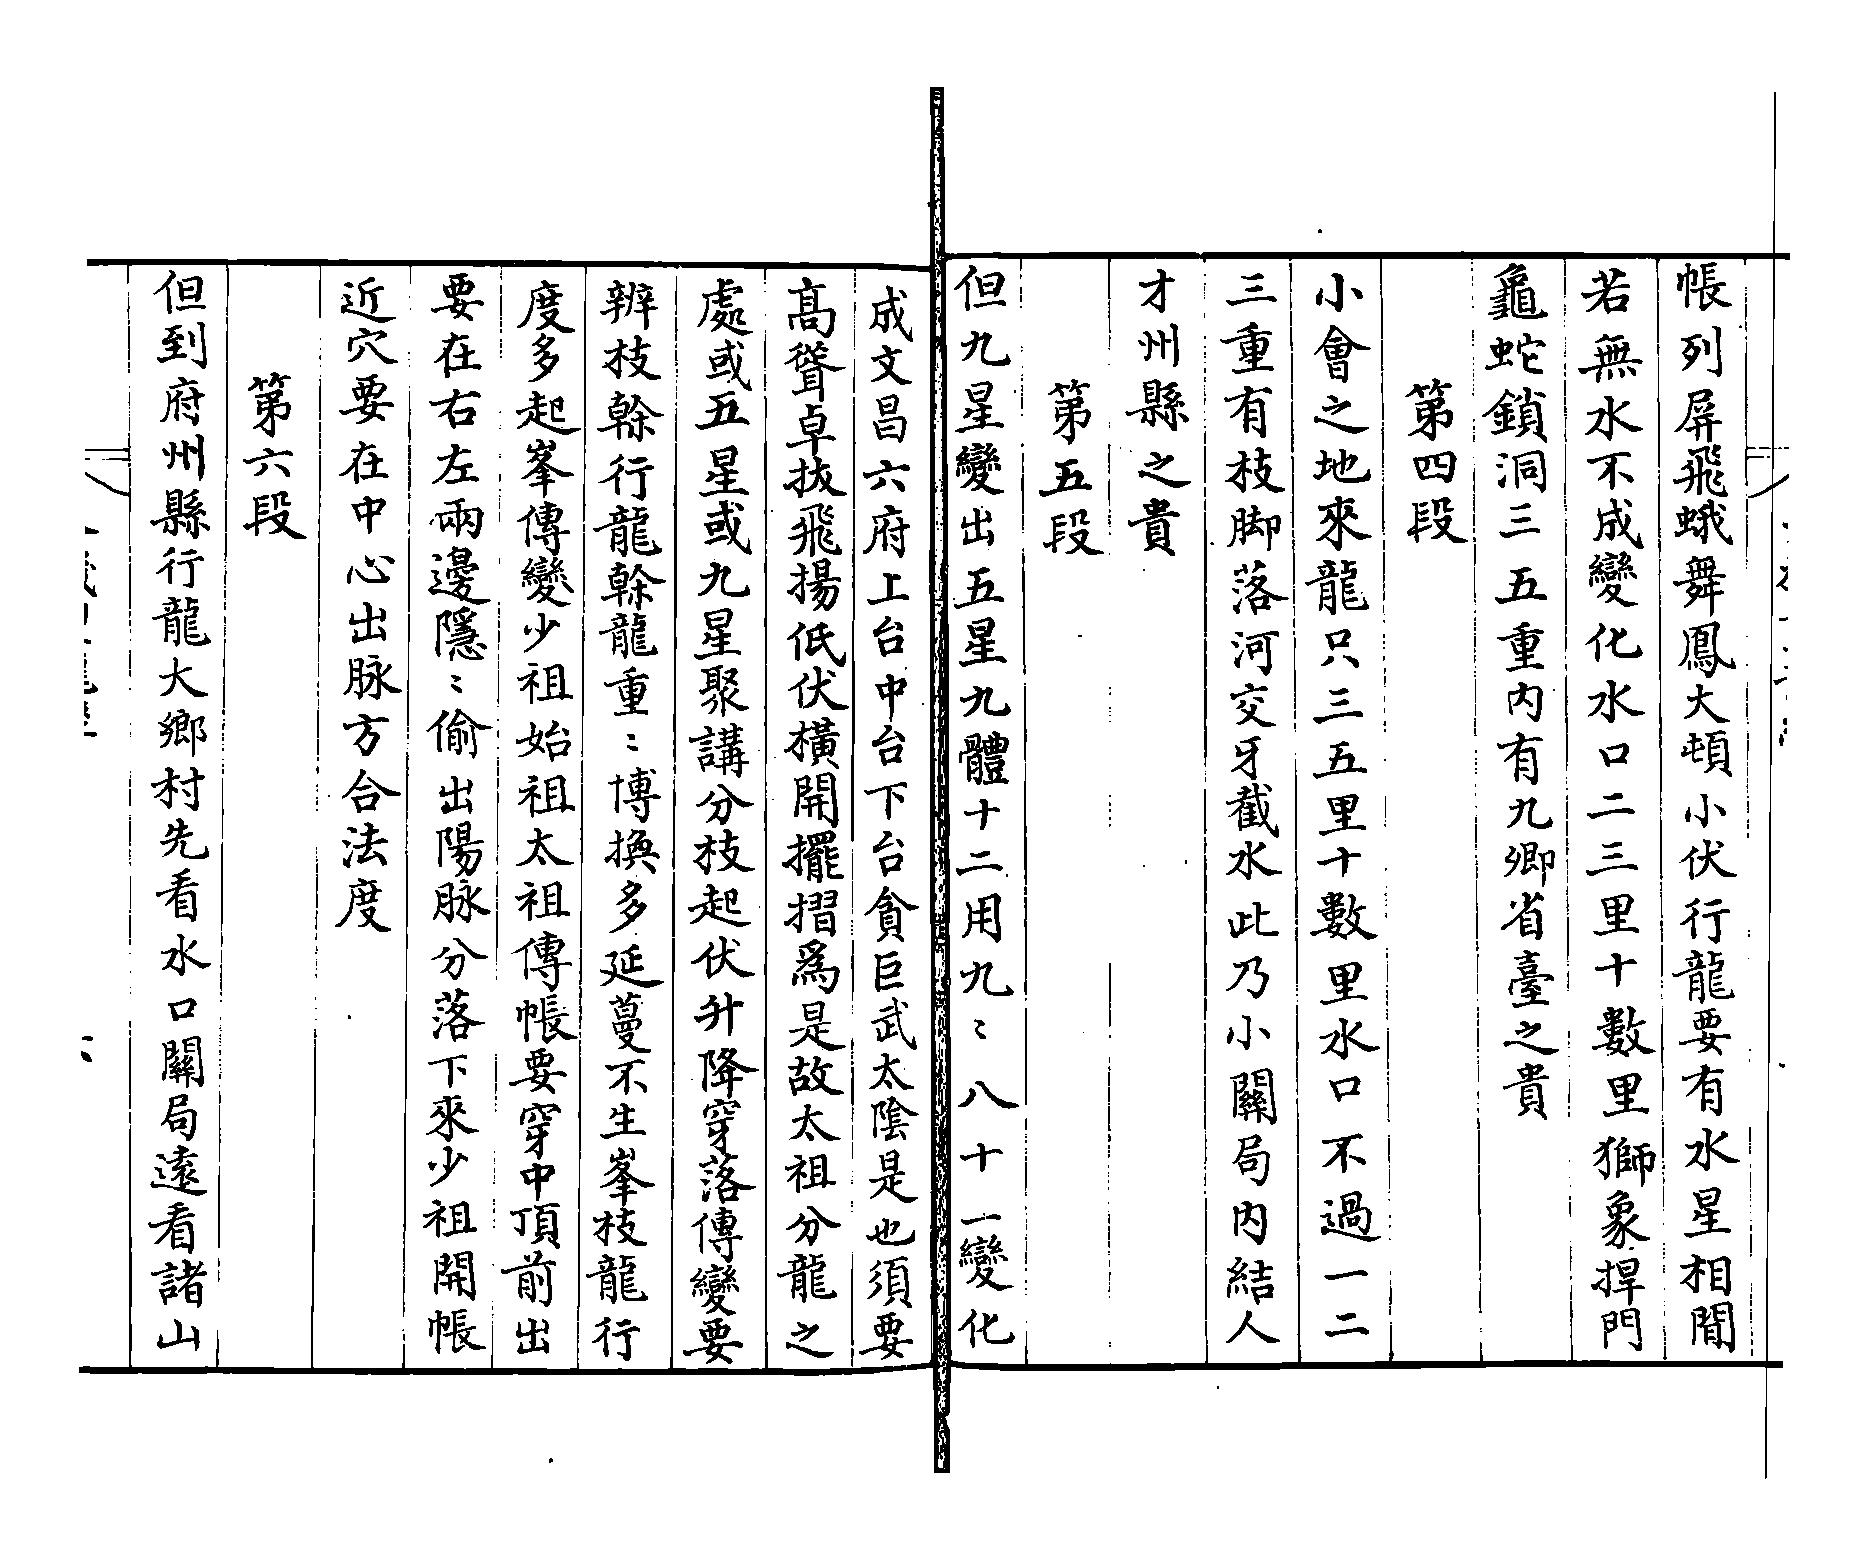 帳列屏飛蛾舞鳳大頓小伏行龍要有水星相間
若無水不成變化水口二三里十數里獅象捍門
龜蛇鎖洞三五重內有九卿省臺之貴
第四段
小會之地來龍只三五里十數里水口不過一二
三重有枝脚落河交牙截水此乃小關局內結人
才州縣之貴
第五段
但九星變出五星九體十二用九〻八十一變化
成文昌六府上台中台下台貪巨武太陰是也須要
髙聳卓拔飛揚低伏橫開擺摺爲是故太祖分龍之
處或五星或九星聚講分枝起伏升降穿落傳變要
辨枝榦行龍榦龍重〻博換多延蔓不生峯枝龍行
度多起峯傳變少祖始祖太祖傳帳要穿中頂前出
要在右左兩邊隱〻偷出陽脉分落下來少祖開帳
近穴要在中心出脉方合法度
第六段
但到府州縣行龍大鄉村先看水口關局逺看諸山